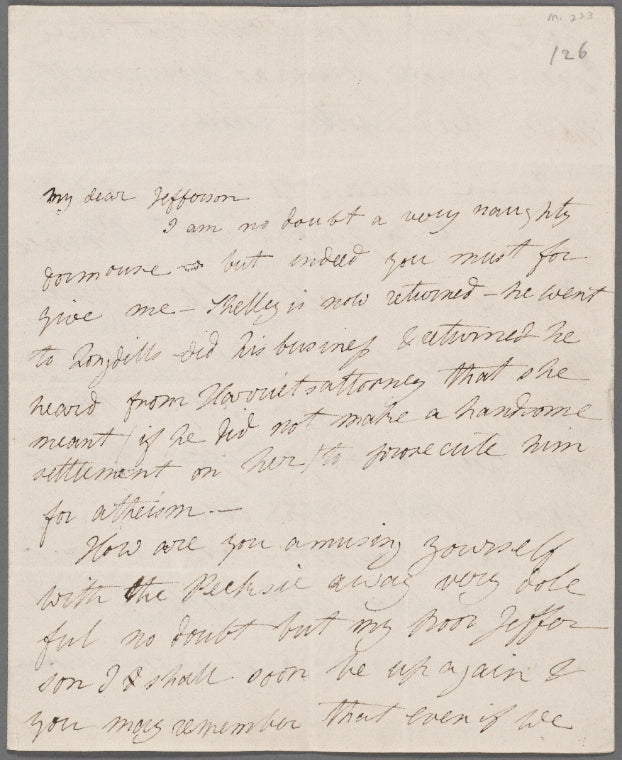 M. 223
126
My dear Jefferson
I am no doubt a very naughty
dormouse – but indeed you must for
give me – Shelley is now returned – he went
to Longdills did his business & returned he
heard from Harriets attorney that she
meant (if he did not make a handsome
settlement on her) to prosecute him
for atheism. –
How are you amusing yourself
with the Pecksie away very dole
ful no doubt but my poor Jeffer
son I shall soon be up again &
you may remember that even if we